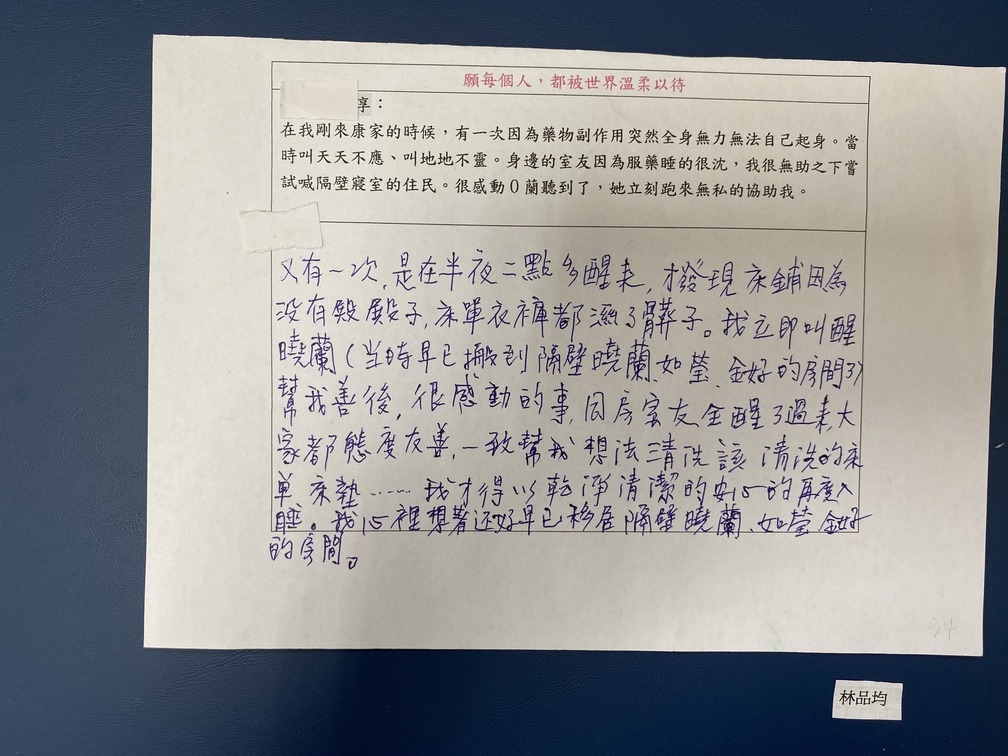 願每個人，都被世界溫柔以待
享：
在我剛來康家的時候，有一次因為藥物副作用突然全身無力無法自己起身。當
時叫天天不應、叫地地不靈。身邊的室友因為服藥睡的很沈，我很無助之下嘗
試喊隔壁寢室的住民。很感動０蘭聽到了，她立刻跑來無私的協助我。
又有一次，是在半夜二點多醒来，才發現床鋪因為
没有殿殿子，床單衣褲都濕了髒子。我立即叫醒
曉蘭（当時早已搬到隔壁曉蘭、如瑩、金好的房間了）
幫我善後，很感動的事，同房室友全醒了過来，大
家都態度友善，一致幫我想法清洗該清洗的床
单床墊……我才得以乾淨清潔的安心的再度入
睡。我心裡想著还好早已移居隔壁曉蘭、如瑩、金好
的房間。
34
林品均